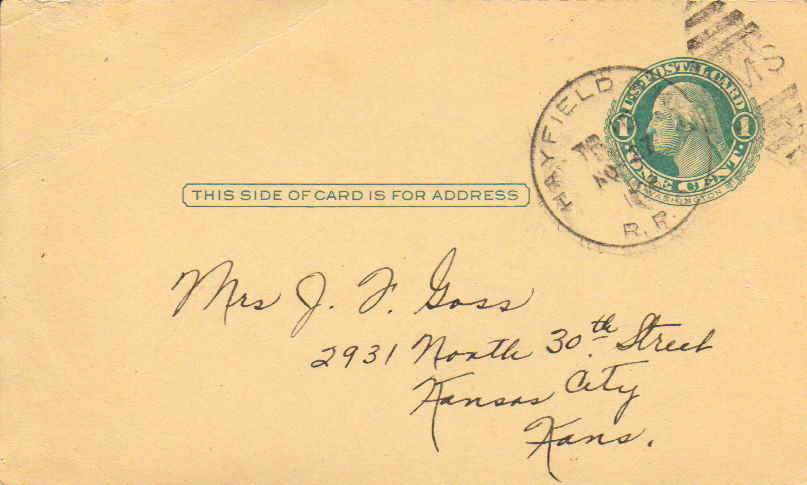 U.S. POSTAL CARD
1 1
ONE CENT
WASHINGTON
HAYFIELD
TR
R.P.
THIS SIDE OF CARD IS FOR ADDRESS
Mrs J. F. Goss
2931 North 30th. Street
Kansas City
Kans.